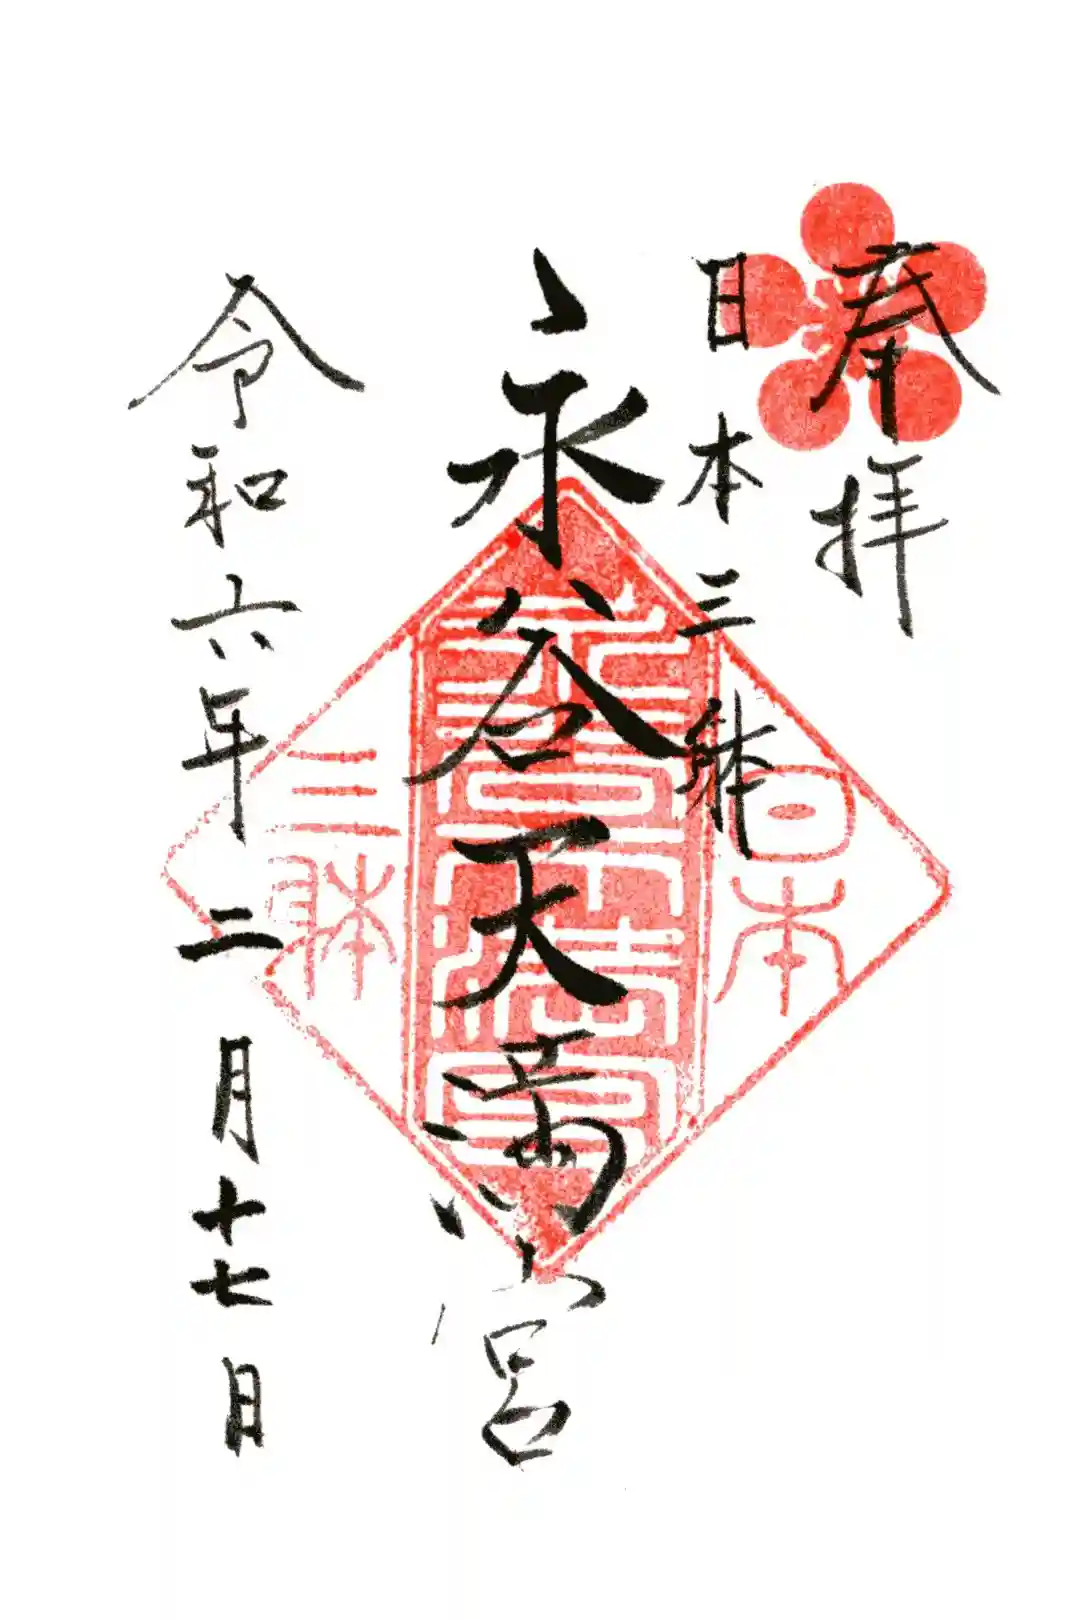 奉拝
日本三躰
永谷天満宮
令和六年二月十七日
日本
永谷天満宮
三躰